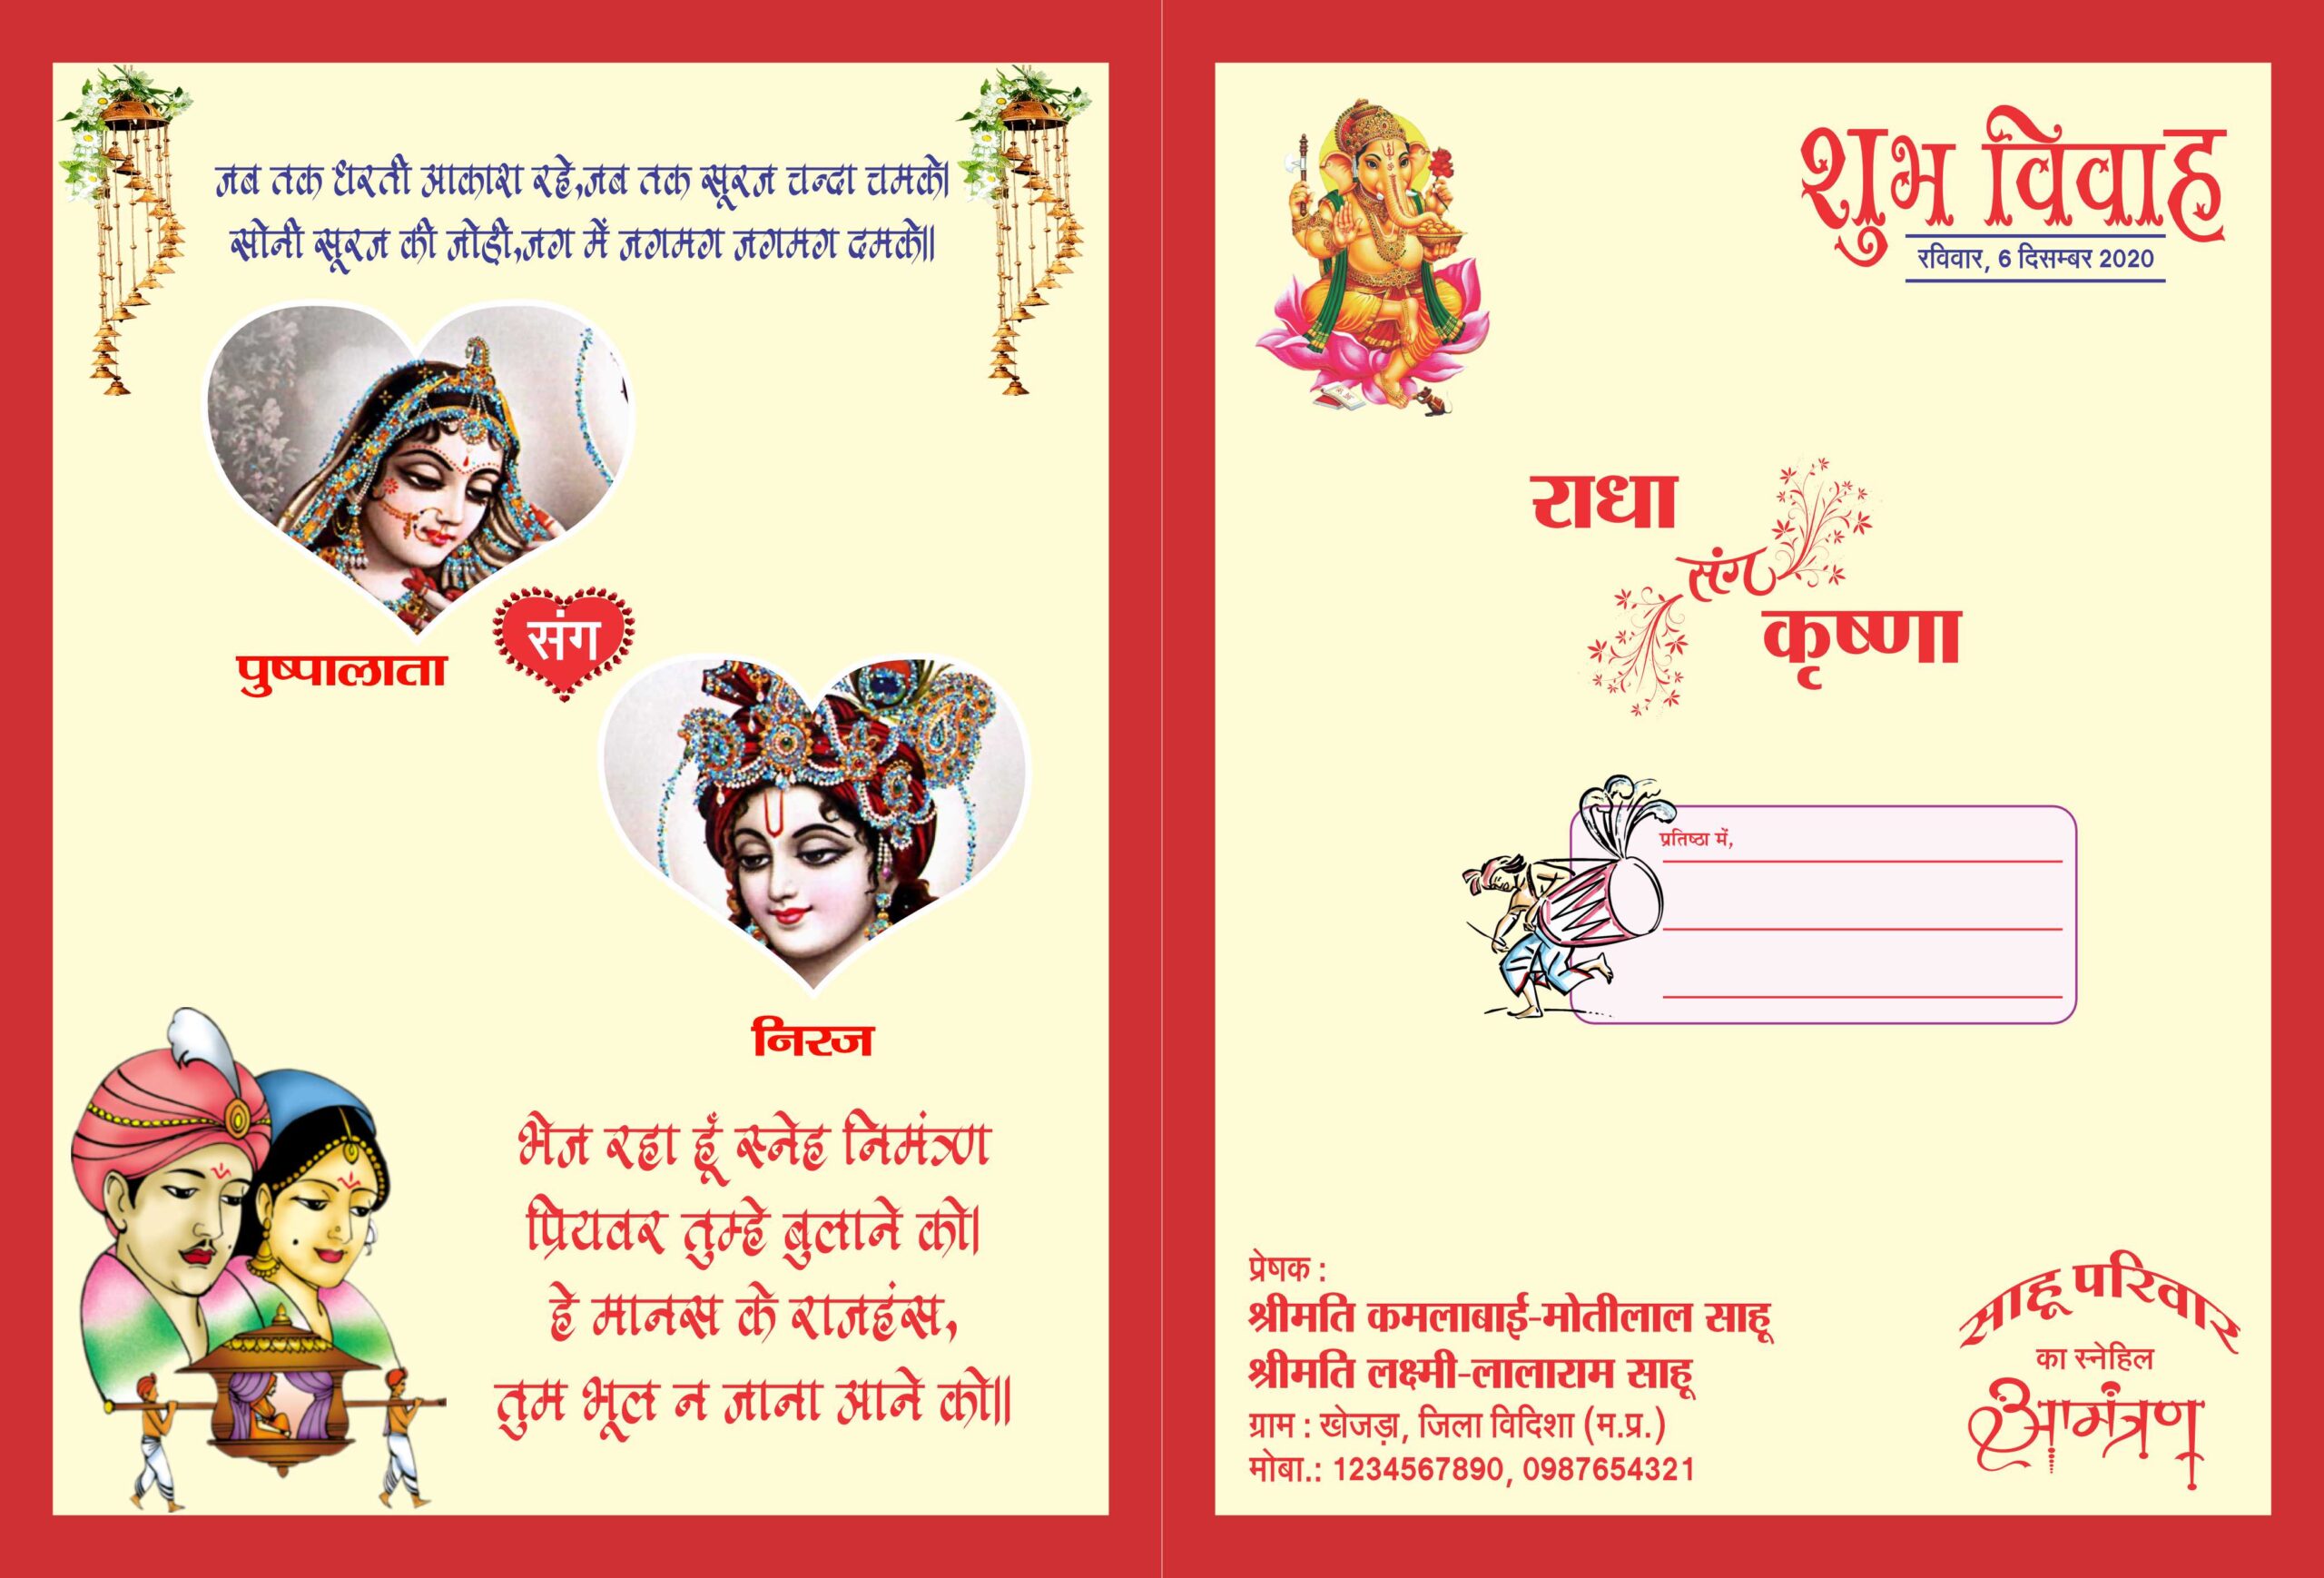 जब तक धरती आकाश रहे,जब तक सूरज चन्दा चमके।
सोनी सूरज की जोड़ी,जग में जगमग जगमग दमके॥
पुष्पालाता
संग
निरज
भेज रहा हूँ स्नेह निमंत्रण
प्रियवर तुम्हे बुलाने को।
हे मानस के राजहंस,
तुम भूल न जाना आने को॥
शुभ विवाह
रविवार, 6 दिसम्बर 2020
राधा
संग
कृष्णा
प्रतिष्ठा में,
प्रेषक :
श्रीमति कमलाबाई-मोतीलाल साहू
श्रीमति लक्ष्मी-लालाराम साहू
ग्राम : खेजड़ा, जिला विदिशा (म.प्र.)
मोबा.: 1234567890, 0987654321
साहू परिवार
का स्नेहिल
आमंत्रण